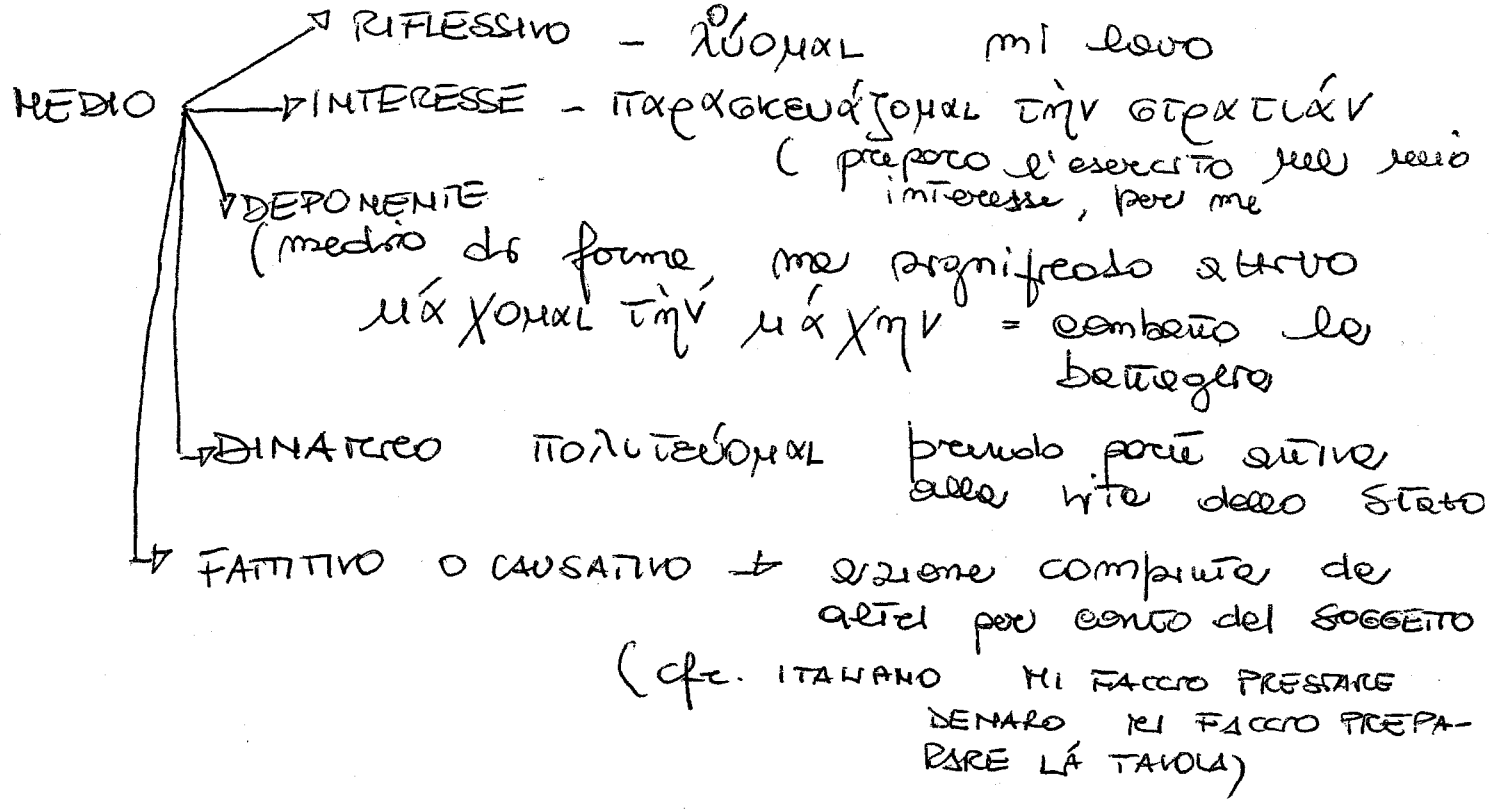 RIFLESSIVO – λούομαι mi lavo
MEDIO INTERESSE – παρασκευάζομαι τὴν στρατιάν
( preparo l'esercito nel mio
interesse, per me
DEPONENTE
(medio di forma, ma significato attivo
μάχομαι τὴν μάχην = combatto la
battaglia
DINAMICO πολιτεύομαι prendo parte attiva
alla vita dello Stato
FATTITIVO O CAUSATIVO → azione compiuta da
altri per conto del SOGGETTO
(cfr. ITALIANO MI FACCIO PRESTARE
DENARO MI FACCIO PREPA-
RARE LÁ TAVOLA)